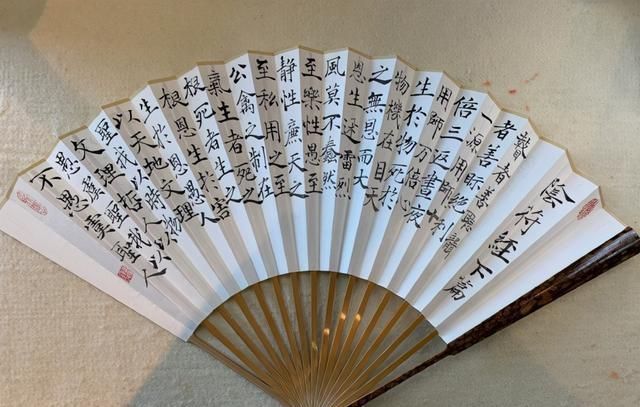 陰符经下篇
瞽者善聽聾
者善視絕利
一源用師十
倍三返晝夜
用師萬倍心
生於物死於
物機在目天
之無恩而大
恩生迅雷烈
風莫不蠢然
至樂性愚至
靜性廉天之
至私用之至
公禽之制在
氣生者死之
根死者生之
根恩生於害
生於恩愚人
以天地文理
聖我以時物
文理
人以愚虞聖
我以不愚
聖人